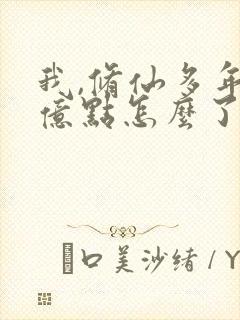 我,脩仙多年
億點怎麼了
口美沙绪/Y